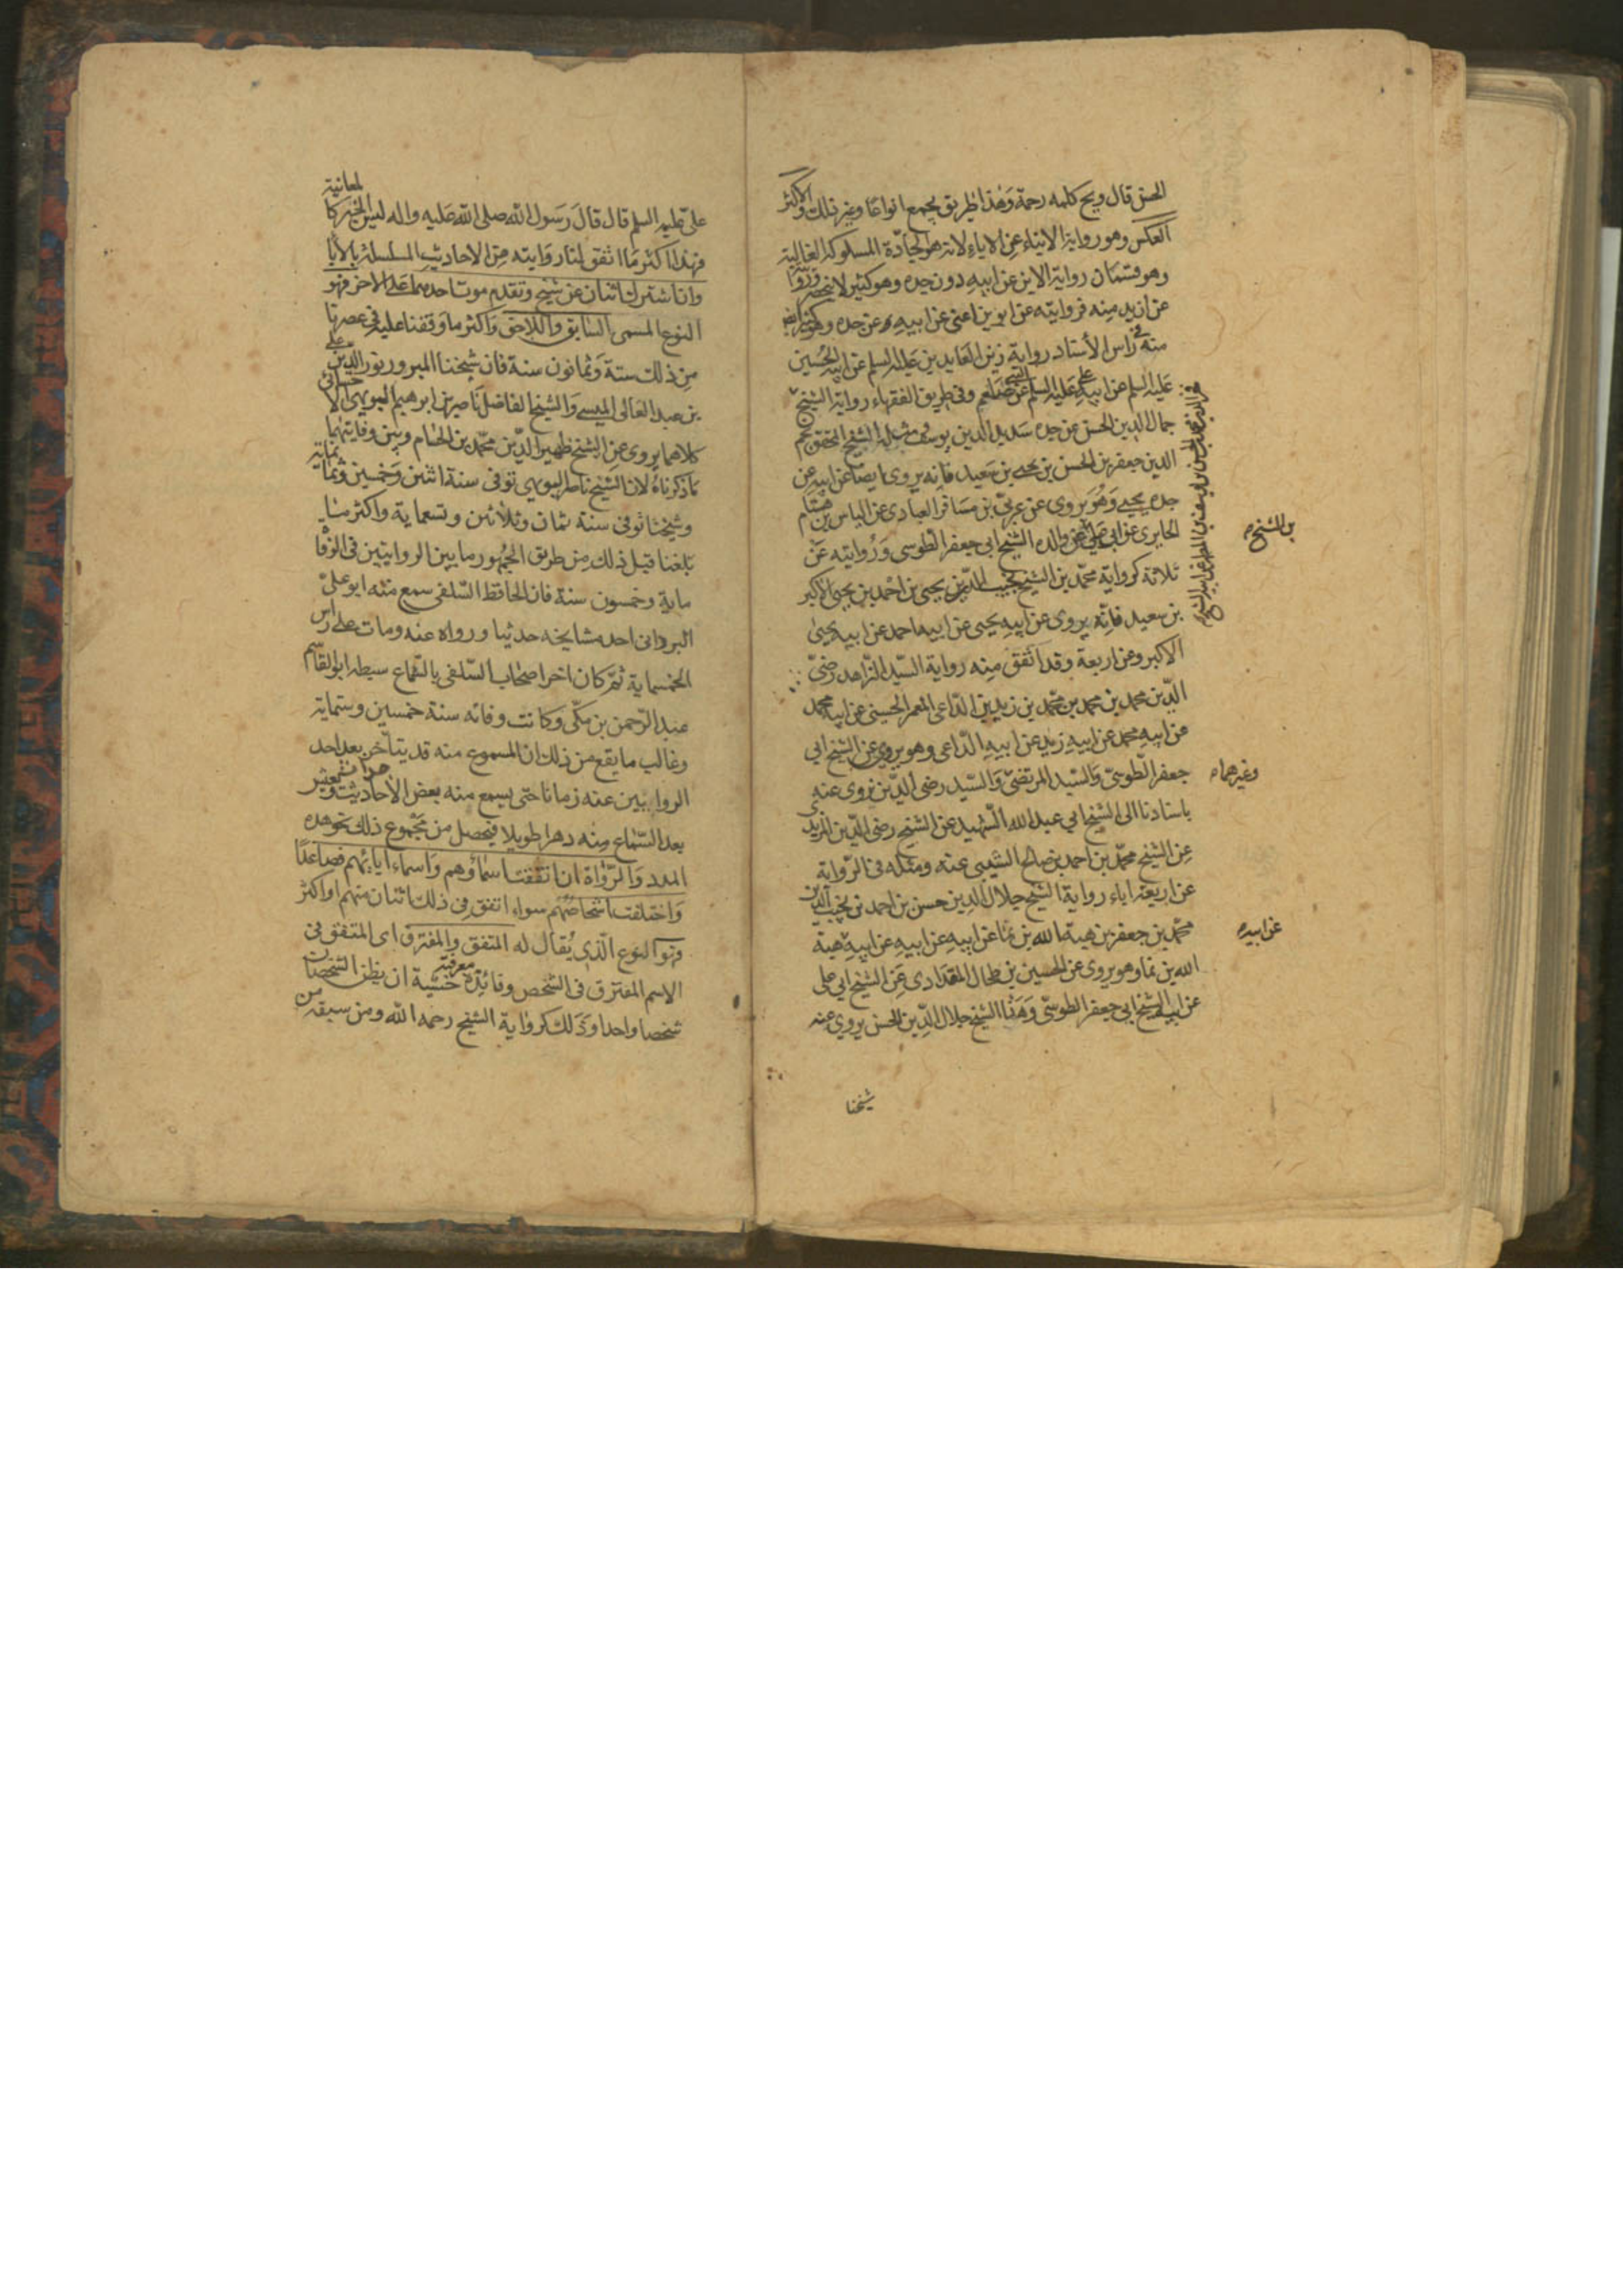 الحسن قال ويح كلمه رحمة وهذا طريق يجمع انواعا وغير ذلك والاكثر
العكس وهو رواية الابناء عن الاباء لانه هو الجادة المسلوكة الغالبة
وهو قسمان رواية الابن عن ابيه دون جده وهو كثير لا ينحصر وروا
عن ازيد منه فروايته عن ابوين اعنى عن ابيه عن جده وهو كثير ايضا
منه في راس الأسناد رواية زين العابدين عليه السلم عن ابيه الحسين
عليه السلم عن ابيه على عليه السلم عن النبي صلعم وفى طريق الفقهاء رواية الشيخ
جمال الدين الحسن عن جده سديد الدين يوسف ومثله الشيخ المحقق نجم
الدين جعفر بن الحسن بن يحيى بن سعيد فانه يروى ايضا عن ابيه عن
جده يحيى وهو يروى عن عربى بن مسافر العبادى عن الياس بن هشام
الحايرى عن ابى على عن والده الشيخ ابى جعفر الطوسى وروايته عن
ثلاثة كرواية محمد بن الشيخ نجيب الدين يحيى بن احمد بن يحيى الاكبر
بن سعيد فانه يروى عن ابيه يحيى عن ابيه احمد عن ابيه يحيى
الاكبر وعن اربعة وقد اتفق منه رواية السيد الزاهد رضى
الدين محمد بن محمد بن محمد بن زيد بن الداعى المعمر الحسينى عن ابيه محمد
عن ابيه محمد عن ابيه زيد عن ابيه الداعى وهو يروى عن الشيخ ابى
جعفر الطوسى والسيد المرتضى والسيد رضى الدين نروى عنه
باسنادنا الى الشيخ ابى عبد الله الشهيد عن الشيخ رضى الدين المزيدى
عن الشيخ محمد بن احمد بن صالح السيبى عنه ومثله فى الرواية
عن اربعة اباء رواية الشيخ جلال الدين حسن بن احمد بن نجيب الدين
محمد بن جعفر بن هبة الله بن نما عن ابيه عن ابيه عن ابيه هبة
الله بن نما وهو يروى عن الحسين بن طحال المقدادى عن الشيخ ابى على
عن ابيه الشيخ ابى جعفر الطوسى وهذا الشيخ جلال الدين الحسن يروى عنه
شيخنا
بن الشيخ
وغيرهما
عن ابيه
على عليه السلم قال قال رسول الله صلى الله عليه واله ليس الخبر كالمعاينة
فهذا اكثر ما اتفق لنا روايته من الاحاديث المسلسلة بالابا
وان اشترك اثنان عن شيخ وتقدم موت احدهما على الاخر فهو
النوع المسمى السابق واللاحق واكثر ما وقفنا عليه فى عصرنا
من ذلك ستة وثمانون سنة فان شيخنا المبرور نور الدين على
بن عبد العالى الميسى والشيخ الفاضل ناصر بن ابرهيم البويهى الاحسائى
كلاهما يروى عن الشيخ ظهير الدين محمد بن الحسام وبين وفاتيهما
ما ذكرناه لان الشيخ ناصر البويهى توفى سنة اثنين وخمسين وثمانماية
وشيخنا توفى سنة ثمان وثلاثين وتسعماية واكثر ما
بلغنا قبل ذلك من طريق الجمهور ما بين الروايتين فى الوفا
ماية وخمسون سنة فان الحافظ السلفى سمع منه ابو على
البردانى احد مشايخه حديثا ورواه عنه ومات على راس
الخمسماية ثم كان اخر اصحاب السلفى بالسماع سبطه ابو القاسم
عبد الرحمن بن مكى وكانت وفاته سنة خمسين وستماية
وغالب ما يقع من ذلك ان المسموع منه قد يتأخر بعد احد
الروايين عنه زمانا حتى يسمع منه بعض الأحداث ويعيش
بعد السماع منه دهرا طويلا فيحصل من مجموع ذلك نحو هذه
المدد والرواة ان اتفقت اسماؤهم واسماء ابائهم فصاعدا
واختلفت اشخاصهم سواء اتفق فى ذلك اثنان منهم او اكثر
فهو النوع الذى يقال له المتفق والمفترق اى المتفق فى
الاسم المفترق فى الشخص وفائدة معرفته خشية ان يظن الشخصان
شخصا واحدا وذلك كرواية الشيخ رحمه الله ومن سبقه من